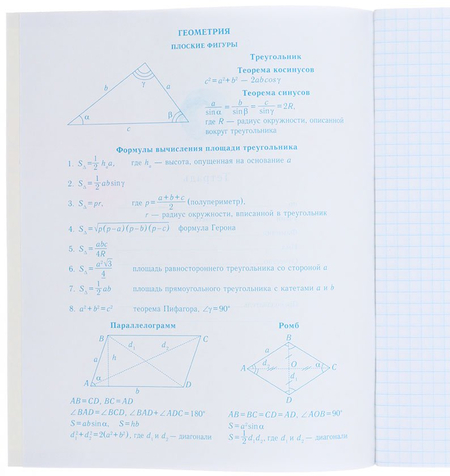 ГЕОМЕТРИЯ
ПЛОСКИЕ ФИГУРЫ
Треугольник
Теорема косинусов
c² = a² + b² — 2ab cos γ
Теорема синусов
a/sin α = b/sin β = c/sin γ = 2R,
где R — радиус окружности, описанной
вокруг треугольника
b a γ α β c
Формулы вычисления площади треугольника
1. S△ = 1/2 hₐa, где hₐ — высота, опущенная на основание a
2. S△ = 1/2 ab sin γ
3. S△ = pr, где p = (a+b+c)/2 (полупериметр),
r — радиус окружности, вписанной в треугольник
4. S△ = √p(p−a)(p−b)(p−c) формула Герона
5. S△ = abc/4R
6. S△ = a²√3/4 площадь равностороннего треугольника со стороной a
7. S△ = 1/2 ab площадь прямоугольного треугольника с катетами a и b
8. a² + b² = c² теорема Пифагора, ∠γ = 90°
Параллелограмм
B C a h d₁ d₂ A α b D
AB = CD, BC = AD
∠BAD = ∠BCD, ∠BAD + ∠ADC = 180°
S = ab sin α, S = hb
d₁² + d₂² = 2(a² + b²), где d₁ и d₂ — диагонали
Ромб
B a A α O C D
AB = BC = CD = AD, ∠AOB = 90°
S = a² sin α
S = 1/2 d₁d₂, где d₁ и d₂ — диагонали